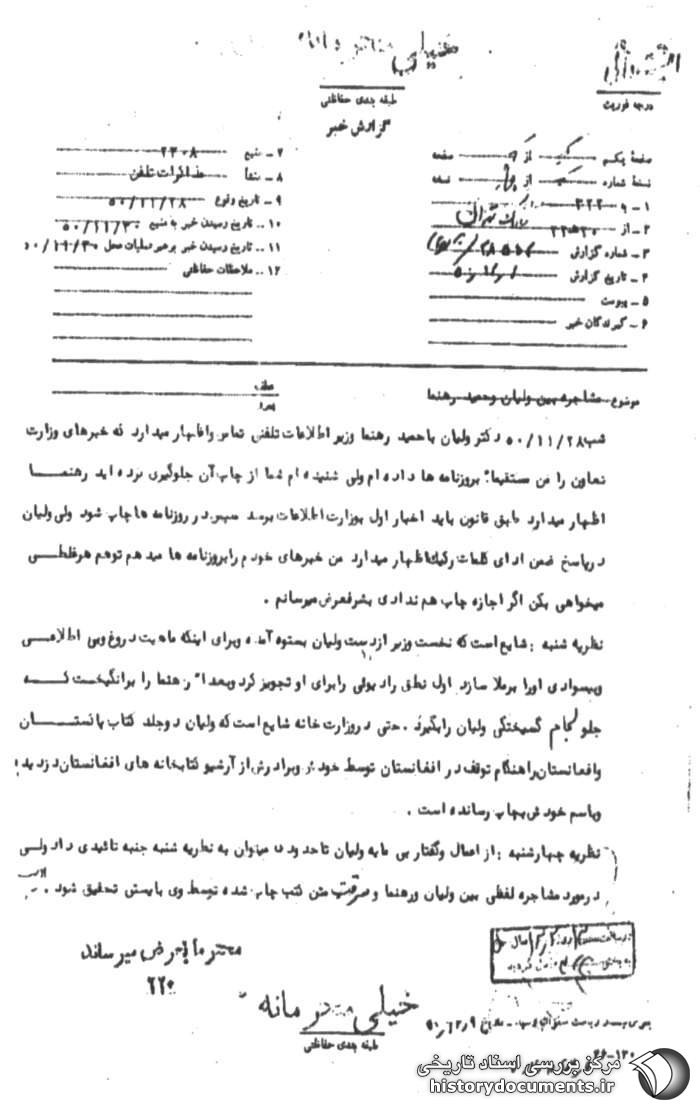 خیلی محرمانه
طبقه بندی حفاظتی
درجه فوریت
گزارش خبر
صفحه یکم از صفحه
نسخه شماره از نسخه
۱ ـ به ۳۲۲
۲ ـ از
۳ ـ شماره گزارش
۴ ـ تاریخ گزارش
۵ ـ پیوست
۶ ـ گیرندگان خبر
۷ ـ منبع ۲۳۰۸
۸ ـ منشأ مذاکرات تلفن
۹ ـ تاریخ وقوع ۵۰/۱۱/۲۸
۱۰ ـ تاریخ رسیدن خبر به منبع ۵۰/۱۱/۳۰
۱۱ ـ تاریخ رسیدن خبر برهبر عملیات محل ۵۰/۱۱/۳۰
۱۲ ـ ملاحظات حفاظتی
موضوع مشاجره بین ولیان وحمید رهنما
عطف
پیرو
شب ۵۰/۱۱/۲۸ دکتر ولیان با حمید رهنما وزیر اطلاعات تلفنی تماس واظهار میدارد که خبرهای وزارت
تعاون را من مستقیما" بروزنامه ها داده ام ولی شنیده ام شما از چاپ آن جلوگیری کرده اید رهنما
اظهار میدارد طبق قانون باید اخبار اول بوزارت اطلاعات برسد سپس در روزنامه ها چاپ شود ولی ولیان
درپاسخ ضمن ادای کلمات رکیک اظهار میدارد من خبرهای خودم را بروزنامه ها میدهم توهم هرغلطی
میخواهی بکن اگر اجازه چاپ هم ندادی بشرفعرض میرسانم .
نظریه شنبه : شایع است که نخست وزیر ازدست ولیان بستوه آمده وبرای اینکه ماهیت دروغ وبی اطلاعی
وبیسوادی اورا برملا سازد اول نطق رادیوئی رابرای او تجویز کرد وبعدا" رهنما را برانگیخت که
جلو لجام گسیختگی ولیان رابگیرد . حتی دروزارت خانه شایع است که ولیان دوجلد کتاب پاکستان
وافغانستان راهنگام توقف در افغانستان توسط خودش وبرادرش از آرشیو کتابخانه های افغانستان دزدیده
وباسم خودش بچاپ رسانده است .
نظریه چهارشنبه : از اعمال وگفتار بی مایه ولیان تاحدودی میتوان به نظریه شنبه جنبه تائیدی داد ولی
درمورد مشاجره لفظی بین ولیان ورهنما و سرقت متن کتب چاپ شده توسط وی بایستی تحقیق شود .
محترما بعرض میرساند
۲۲۰
خیلی محرمانه
طبقه بندی حفاظتی
مرکز بررسی اسناد تاریخی
historydocuments.ir